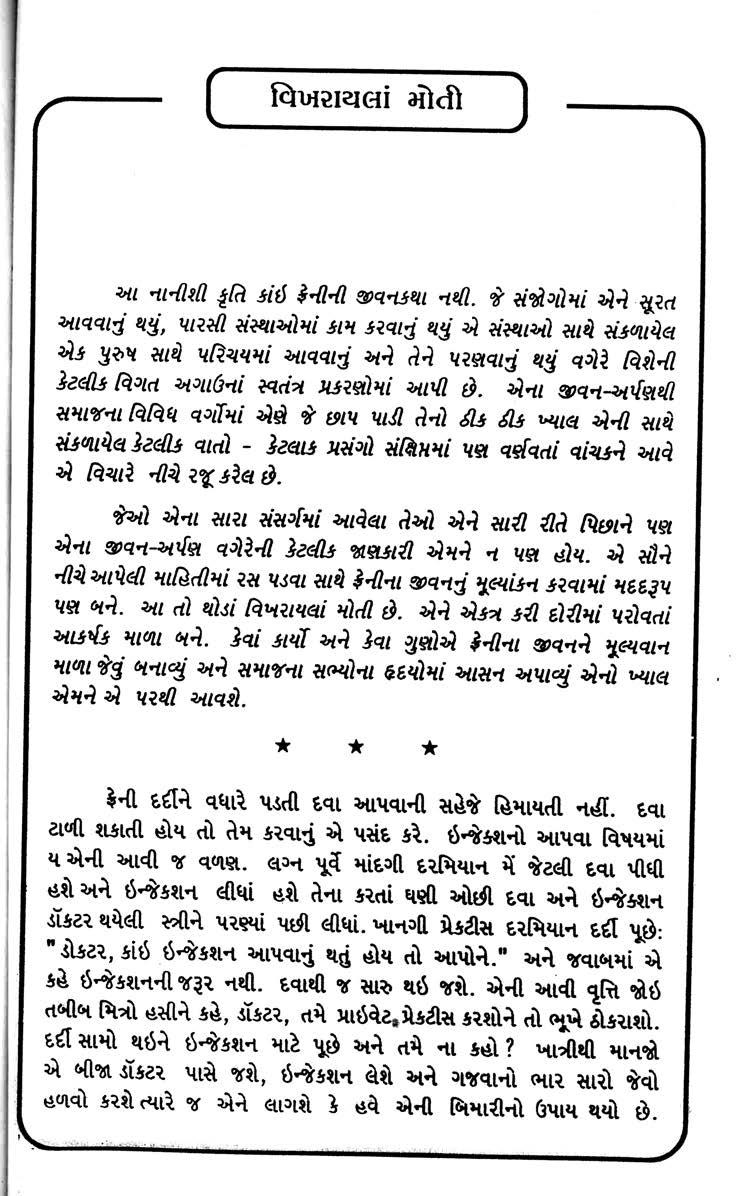 વિખરાયલાં મોતી
આ નાનીશી કૃતિ કાંઇ ફ્રેનીની જીવનકથા નથી. જે સંજોગોમાં એને સૂરત
આવવાનું થયું, પારસી સંસ્થાઓમાં કામ કરવાનું થયું એ સંસ્થાઓ સાથે સંકળાયેલ
એક પુરુષ સાથે પરિચયમાં આવવાનું અને તેને પરણવાનું થયું વગેરે વિશેની
કેટલીક વિગત અગાઉનાં સ્વતંત્ર પ્રકરણોમાં આપી છે. એના જીવન-અર્પણથી
સમાજના વિવિધ વર્ગોમાં એણે જે છાપ પાડી તેનો ઠીક ઠીક ખ્યાલ એની સાથે
સંકળાયેલ કેટલીક વાતો - કેટલાક પ્રસંગો સંક્ષિપ્તમાં પણ વર્ણવતાં વાંચકને આવે
એ વિચારે નીચે રજૂ કરેલ છે.
જેઓ એના સારા સંસર્ગમાં આવેલા તેઓ એને સારી રીતે પિછાને પણ
એના જીવન-અર્પણ વગેરેની કેટલીક જાણકારી એમને ન પણ હોય. એ સૌને
નીચે આપેલી માહિતીમાં રસ પડવા સાથે ફ્રેનીના જીવનનું મૂલ્યાંકન કરવામાં મદદરૂપ
પણ બને. આ તો થોડાં વિખરાયલાં મોતી છે. એને એકત્ર કરી દોરીમાં પરોવતાં
આકર્ષક માળા બને. કેવાં કાર્યો અને કેવા ગુણોએ ફ્રેનીના જીવનને મૂલ્યવાન
માળા જેવું બનાવ્યું અને સમાજના સભ્યોના હૃદયોમાં આસન અપાવ્યું એનો ખ્યાલ
એમને એ પરથી આવશે.
★ ★ ★
ફ્રેની દર્દીને વધારે પડતી દવા આપવાની સહેજે હિમાયતી નહીં. દવા
ટાળી શકાતી હોય તો તેમ કરવાનું એ પસંદ કરે. ઇન્જેક્શનો આપવા વિષયમાં
ય એની આવી જ વળણ. લગ્ન પૂર્વે માંદગી દરમિયાન મેં જેટલી દવા પીધી
હશે અને ઇન્જેકશન લીધાં હશે તેના કરતાં ઘણી ઓછી દવા અને ઇન્જેક્શન
ડૉકટર થયેલી સ્ત્રીને પરણ્યાં પછી લીધાં. ખાનગી પ્રેકટીસ દરમિયાન દર્દી પૂછે:
"ડોકટર, કાંઇ ઇન્જેકશન આપવાનું થતું હોય તો આપોને." અને જવાબમાં એ
કહે ઇન્જેકશનની જરૂર નથી. દવાથી જ સારુ થઇ જશે. એની આવી વૃત્તિ જોઇ
તબીબ મિત્રો હસીને કહે, ડૉકટર, તમે પ્રાઇવેટ પ્રેકટીસ કરશોને તો ભૂખે ઠોકરાશો.
દર્દી સામો થઇને ઇન્જેકશન માટે પૂછે અને તમે ના કહો ? ખાત્રીથી માનજો
એ બીજા ડૉકટર પાસે જશે, ઇન્જેકશન લેશે અને ગજવાનો ભાર સારો જેવો
હળવો કરશે ત્યારે જ એને લાગશે કે હવે એની બિમારીનો ઉપાય થયો છે.